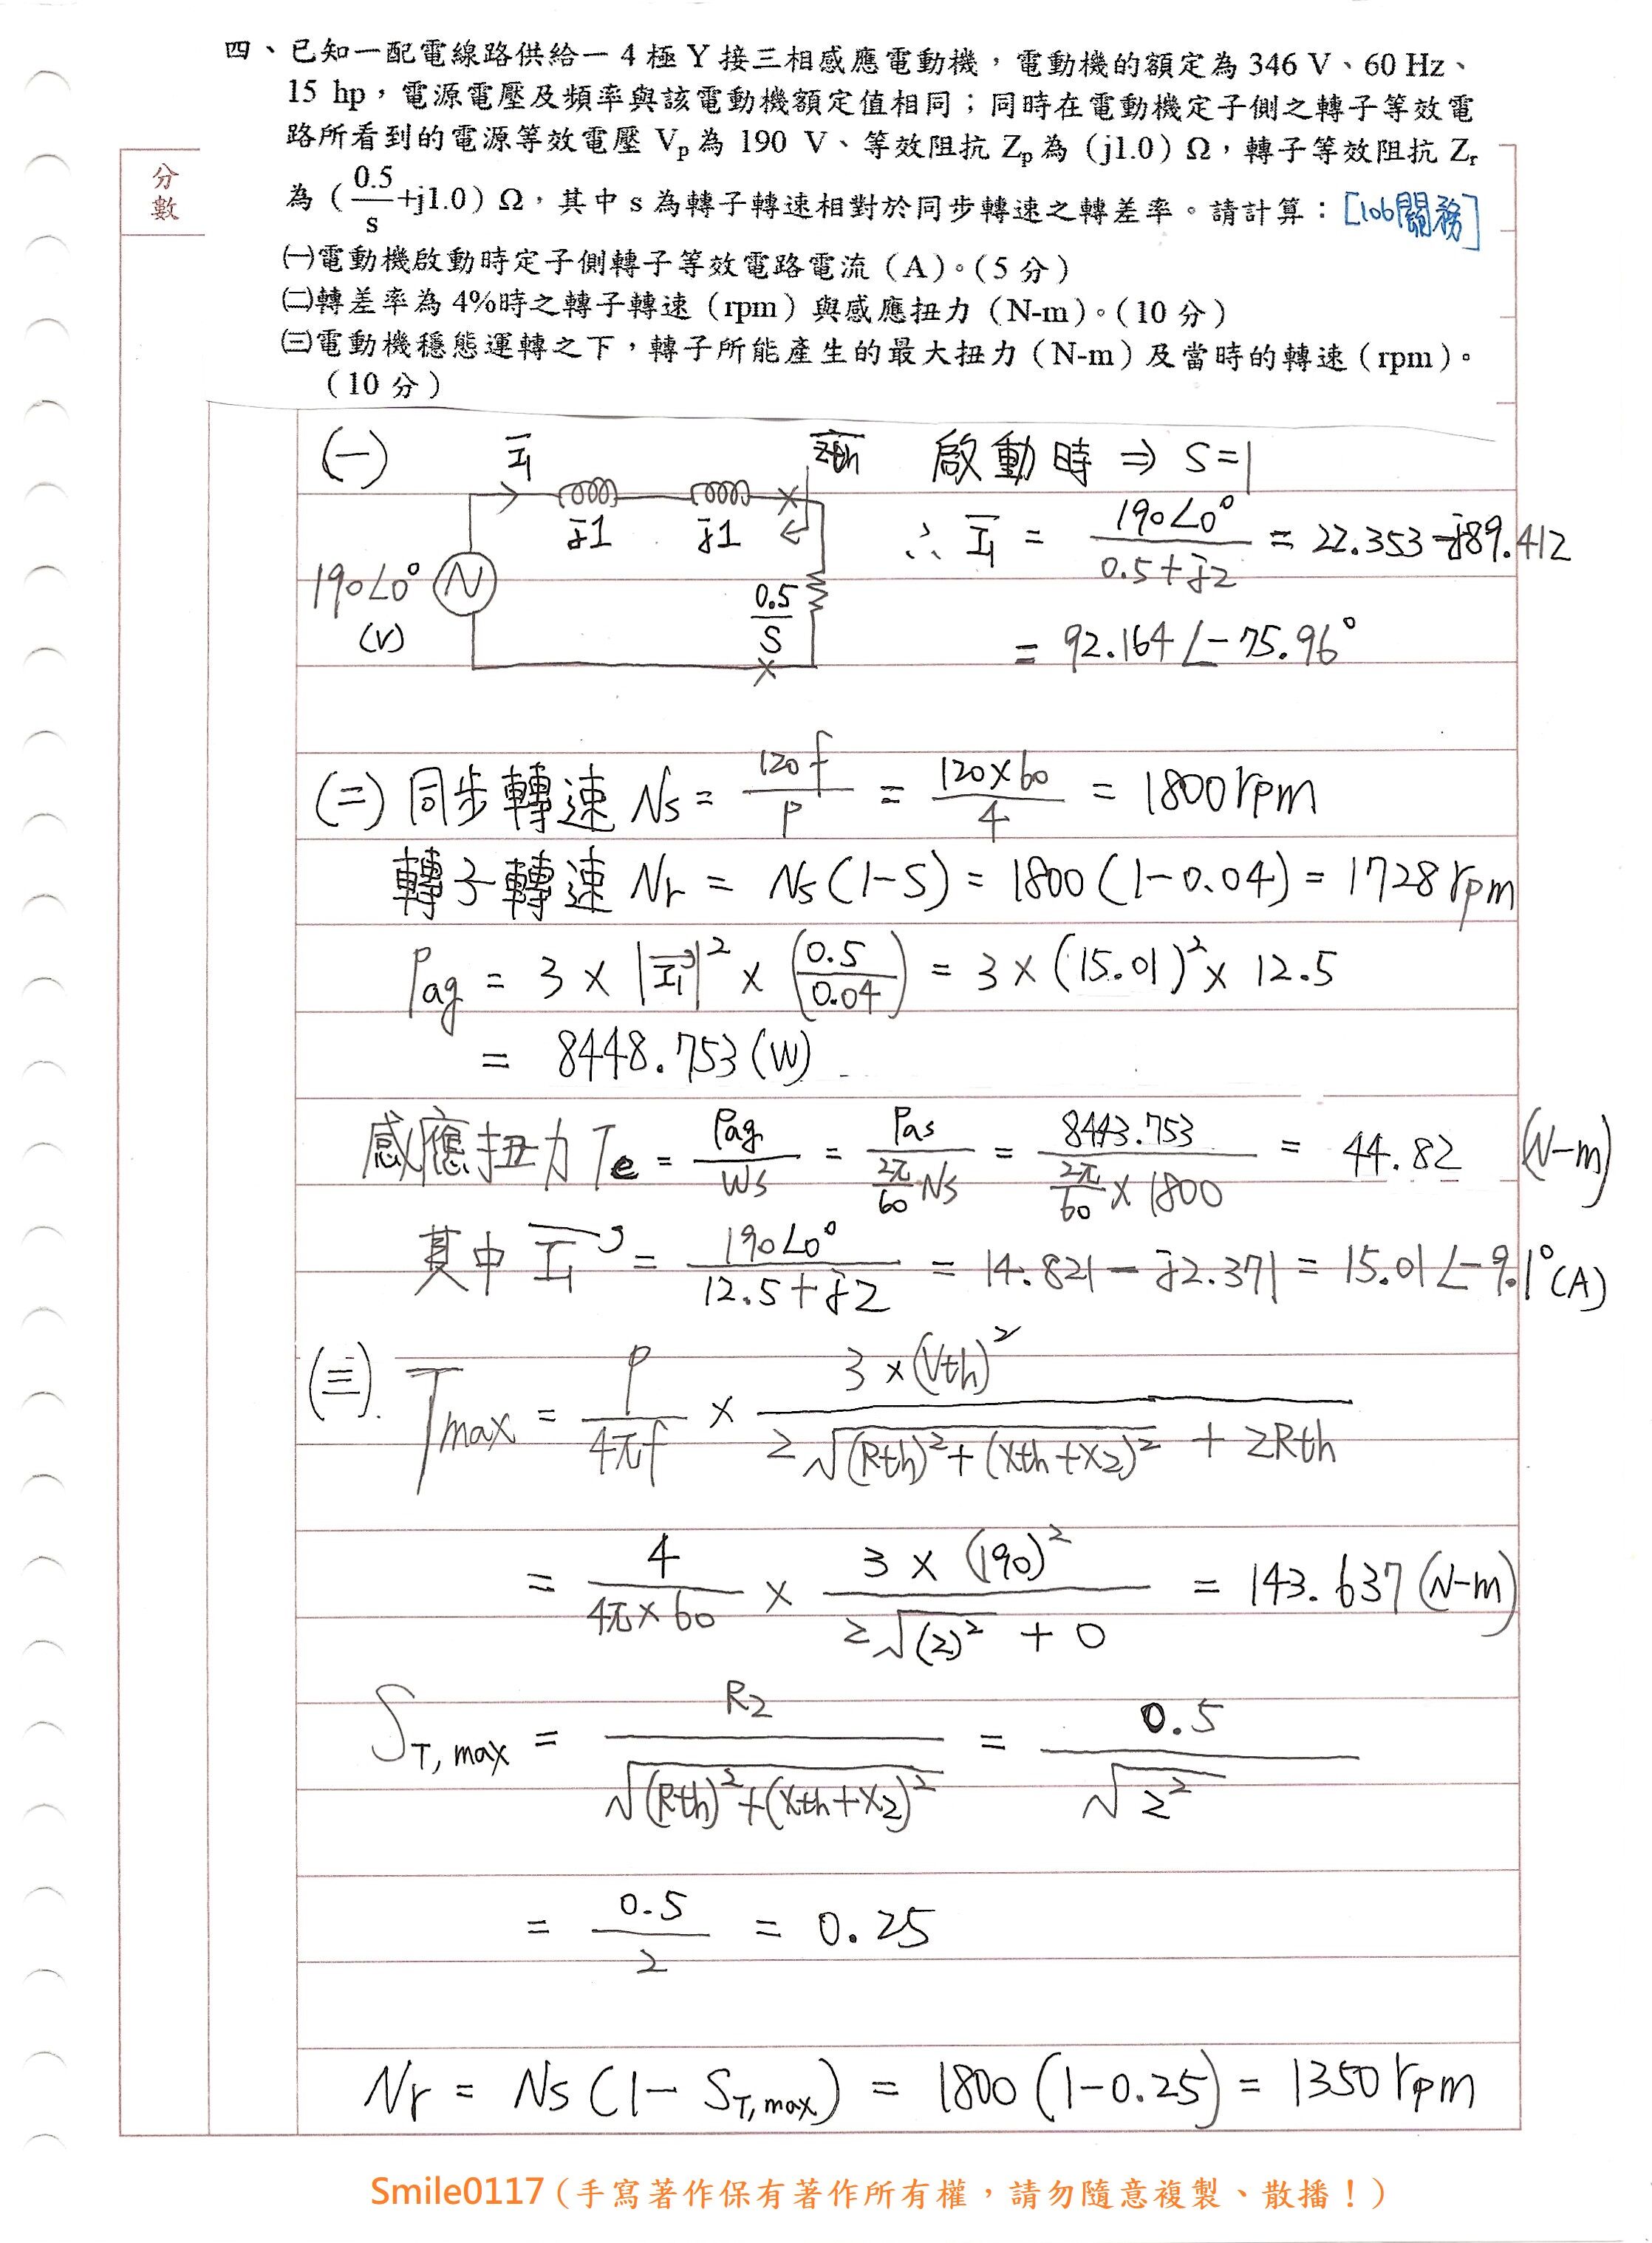 四、已知一配電線路供給一 4 極 Y 接三相感應電動機，電動機的額定為 346 V、60 Hz、
15 hp，電源電壓及頻率與該電動機額定值相同；同時在電動機定子側之轉子等效電
路所看到的電源等效電壓 Vp 為 190 V、等效阻抗 Zp 為（j1.0）Ω，轉子等效阻抗 Zr
為（0.5/s+j1.0）Ω，其中 s 為轉子轉速相對於同步轉速之轉差率。請計算：[106關務]
㈠電動機啟動時定子側轉子等效電路電流（A）。（5 分）
㈡轉差率為 4%時之轉子轉速（rpm）與感應扭力（N-m）。（10 分）
㈢電動機穩態運轉之下，轉子所能產生的最大扭力（N-m）及當時的轉速（rpm）。
（10 分）
分數
(一) I1 Zth 啟動時 ⇒ S=1
j1 j1
∴ I1 = 190∠0°/(0.5+j2) = 22.353-j89.412
190∠0° (V) N 0.5/S
= 92.164∠-75.96°
(二) 同步轉速 Ns = 120f/P = 120×60/4 = 1800 rpm
轉子轉速 Nr = Ns(1-S) = 1800(1-0.04) = 1728 rpm
Pag = 3 × |I1'|² × (0.5/0.04) = 3 × (15.01)² × 12.5
= 8448.753 (W)
感應扭力 Te = Pag/Ws = Pas/(2π/60 Ns) = 8443.753/(2π/60 × 1800) = 44.82 (N-m)
其中 I1' = 190∠0°/(12.5+j2) = 14.821 - j2.371 = 15.01∠-9.1° (A)
(三). Tmax = P/4πf × 3×(Vth)²/(2√((Rth)²+(Xth+X2)²) + 2Rth)
= 4/(4π×60) × 3×(190)²/(2√(2)² + 0) = 143.637 (N-m)
ST,max = R2/√((Rth)²+(Xth+X2)²) = 0.5/√2²
= 0.5/2 = 0.25
Nr = Ns(1-ST,max) = 1800(1-0.25) = 1350 rpm
Smile0117 (手寫著作保有著作所有權，請勿隨意複製、散播！)